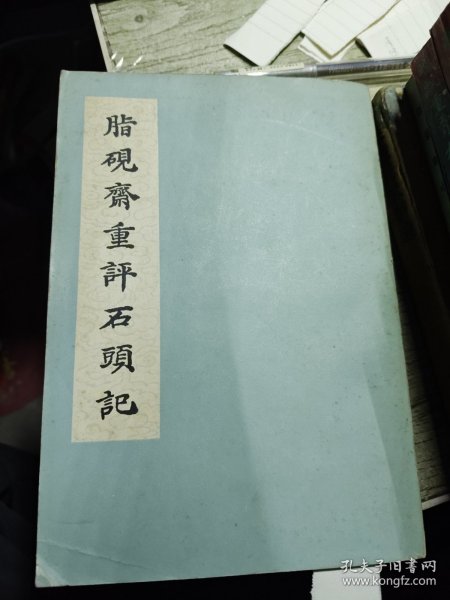 脂硯齋重評石頭記
孔夫子旧书网
www.kongfz.com